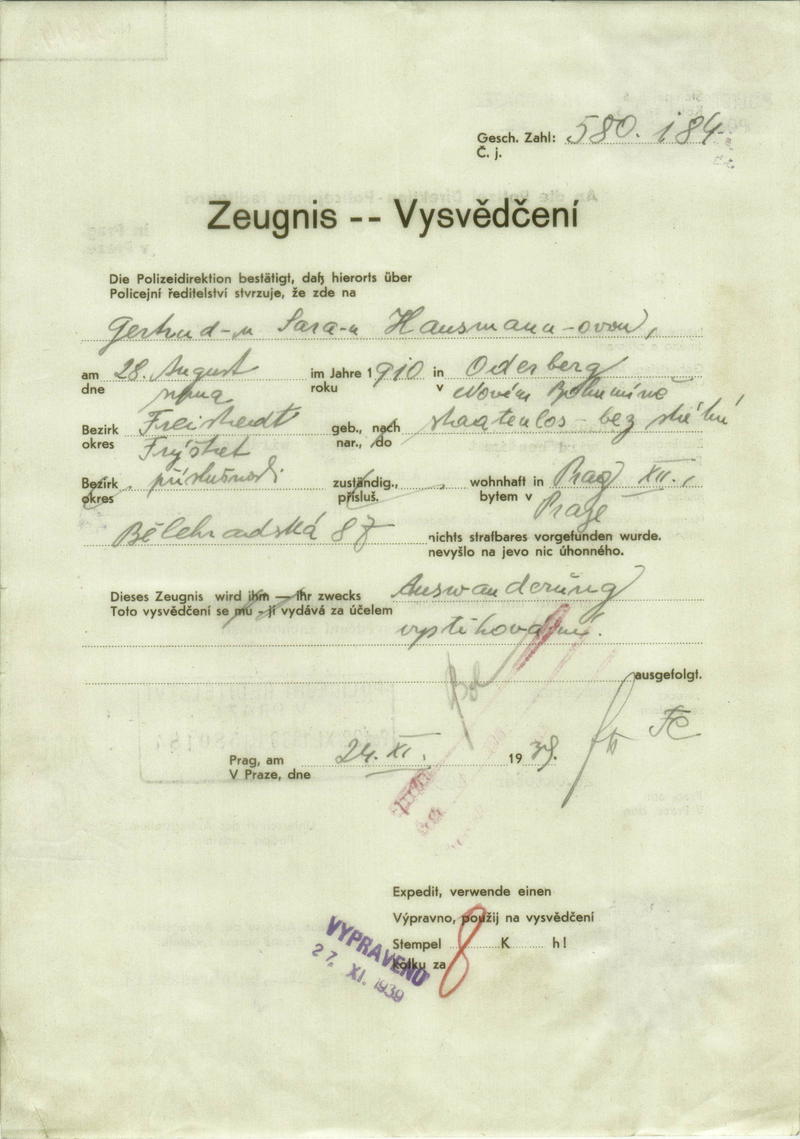 Gesch. Zahl: 580.184
Č. j.
Zeugnis -- Vysvědčení
Die Polizeidirektion bestätigt, daß hierorts über
Policejní ředitelství stvrzuje, že zde na
Gertrud-u Sara-u Hausmann-ovou,
am 28. August im Jahre 1910 in Oderberg
dne srpna roku v Novém Bohumíně
Bezirk Freistadt geb., nach staatenlos - bez stát. ní
okres Fryštat nar., do
Bezirk příslušnosti zuständig., wohnhaft in Prag XII.,
okres přísluš. bytem v Praze
Bělehradská 8 nichts strafbares vorgefunden wurde.
nevyšlo na jevo nic úhonného.
Dieses Zeugnis wird ihm — ihr zwecks Auswanderung
Toto vysvědčení se mu - jí vydává za účelem
vystěhování.
ausgefolgt.
Prag, am 24. XI. 1939.
V Praze, dne
Expedit, verwende einen
Výpravno, použij na vysvědčení
Stempel 8 K h!
kolku za
VYPRAVENO
27. XI. 1939